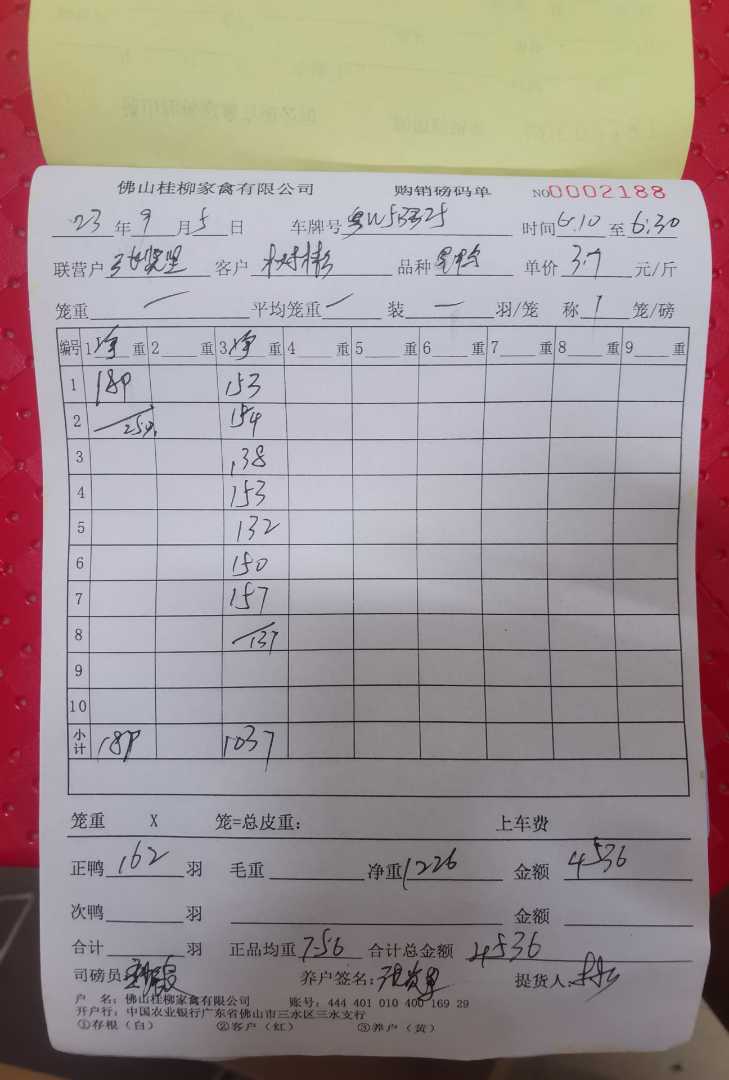 佛山桂柳家禽有限公司 购销磅码单 NO0002188
23年9月5日 车牌号 时间6:10至6:30
联营户 客户 树彬 品种 单价3.7元/斤
笼重一 平均笼重一 装一羽/笼 称1笼/磅
编号 1净重 2重 3净重 4重 5重 6重 7重 8重 9重
1 189 153
2 25只 154
3 138
4 153
5 132
6 150
7 157
8 137
9
10
小计 189 1037
笼重 X 笼=总皮重: 上车费
正鸭162羽 毛重 净重1226 金额4536
次鸭 羽 金额
合计 羽 正品均重7-56 合计总金额4536
司磅员: 养户签名: 提货人:
户 名: 佛山桂柳家禽有限公司 账号: 444 401 010 400 169 29
开户行: 中国农业银行广东省佛山市三水区三水支行
①存根（白） ②客户（红） ③养户（黄）